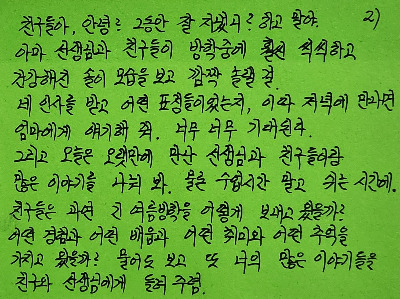 2)
친구들아, 안녕? 그동안 잘 지냈니? 하고 말야.
아마 선생님과 친구들이 방학중에 훨씬 씩씩하고
건강해진 솔이 모습을 보고 깜짝 놀랄 걸.
네 인사를 받고 어떤 표정들이었는지, 이따 저녁에 만나면
엄마에게 얘기해 줘. 너무 너무 기대된다.
그리고 오늘은 오랫만에 만난 선생님과 친구들이랑
많은 이야기를 나눠 봐. 물론 수업시간 말고 쉬는 시간에.
친구들은 과연 긴 여름방학을 어떻게 보내고 왔을까?
어떤 경험과 어떤 배움과 어떤 취미와 어떤 추억을
가지고 왔을까? 물어도 보고 또 너의 많은 이야기들을
친구와 선생님에게 들려 주렴.